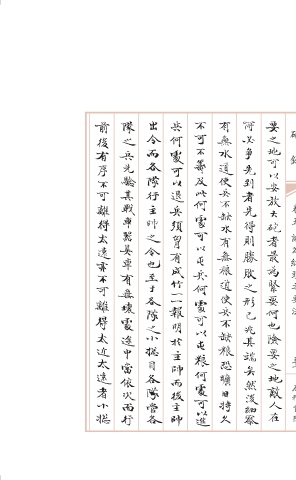 要之地可以安放大砲者最為緊要何也險要之地敵人在
所必爭先到者先得則勝敗之形已兆其端矣然後細察
有無水道使兵不缺水有無粮道使兵不缺粮恐曠日持久
不可不籌及此何處可以屯兵何處可以屯粮何處可以進
兵何處可以退兵須胸有成竹一一報明於主帥而後主帥
出令而各隊行主帥之令也至于各隊之小總目各隊管各
隊之兵先驗其戰車器具車有無壞處途中當依次而行
前後有序不可離得太遠亦不可離得太近太遠者小總